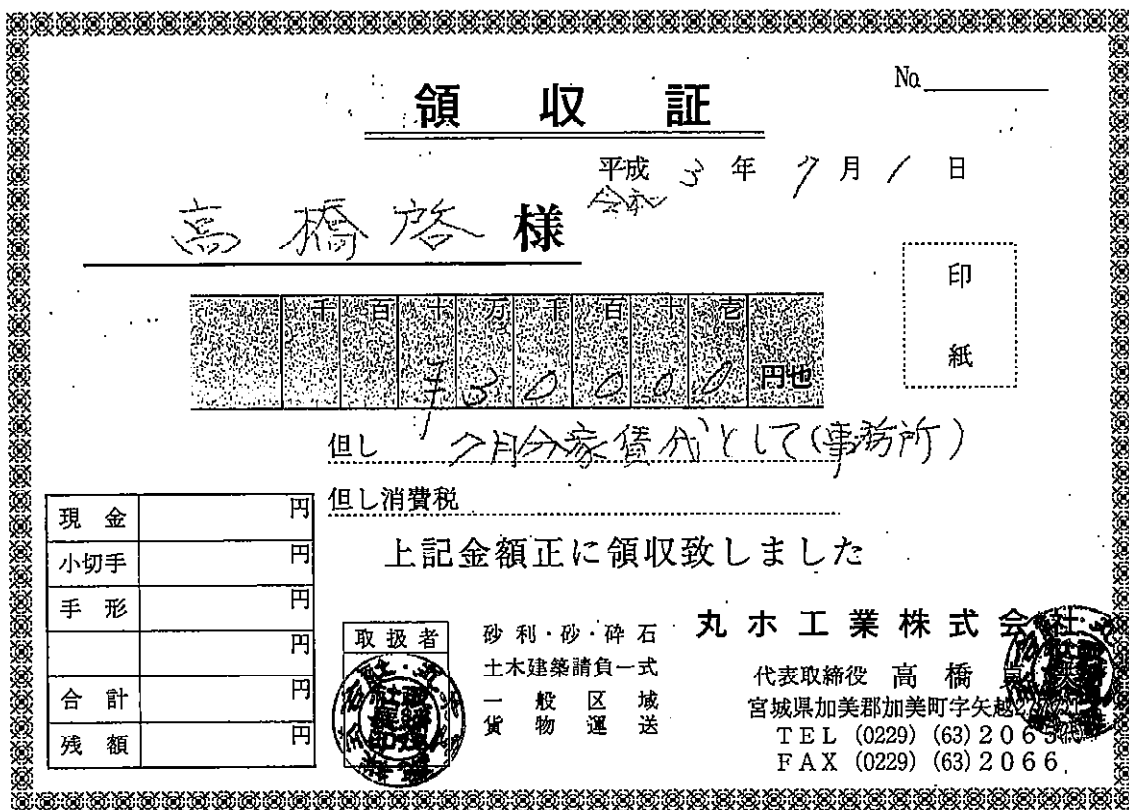 No.
領収証
平成 3年 7月 1日
令和
高橋啓 様
印紙
千百十万千百十壱
¥300000円也
但し 7月分家賃代として(事務所)
但し消費税
上記金額正に領収致しました
現金 円
小切手 円
手形 円
円
合計 円
残額 円
取扱者
砂利・砂・砕石
土木建築請負一式
一般区域
貨物運送
丸ホ工業株式会社
代表取締役 高橋
宮城県加美郡加美町字矢越
TEL (0229) (63) 2065代
FAX (0229) (63) 2066